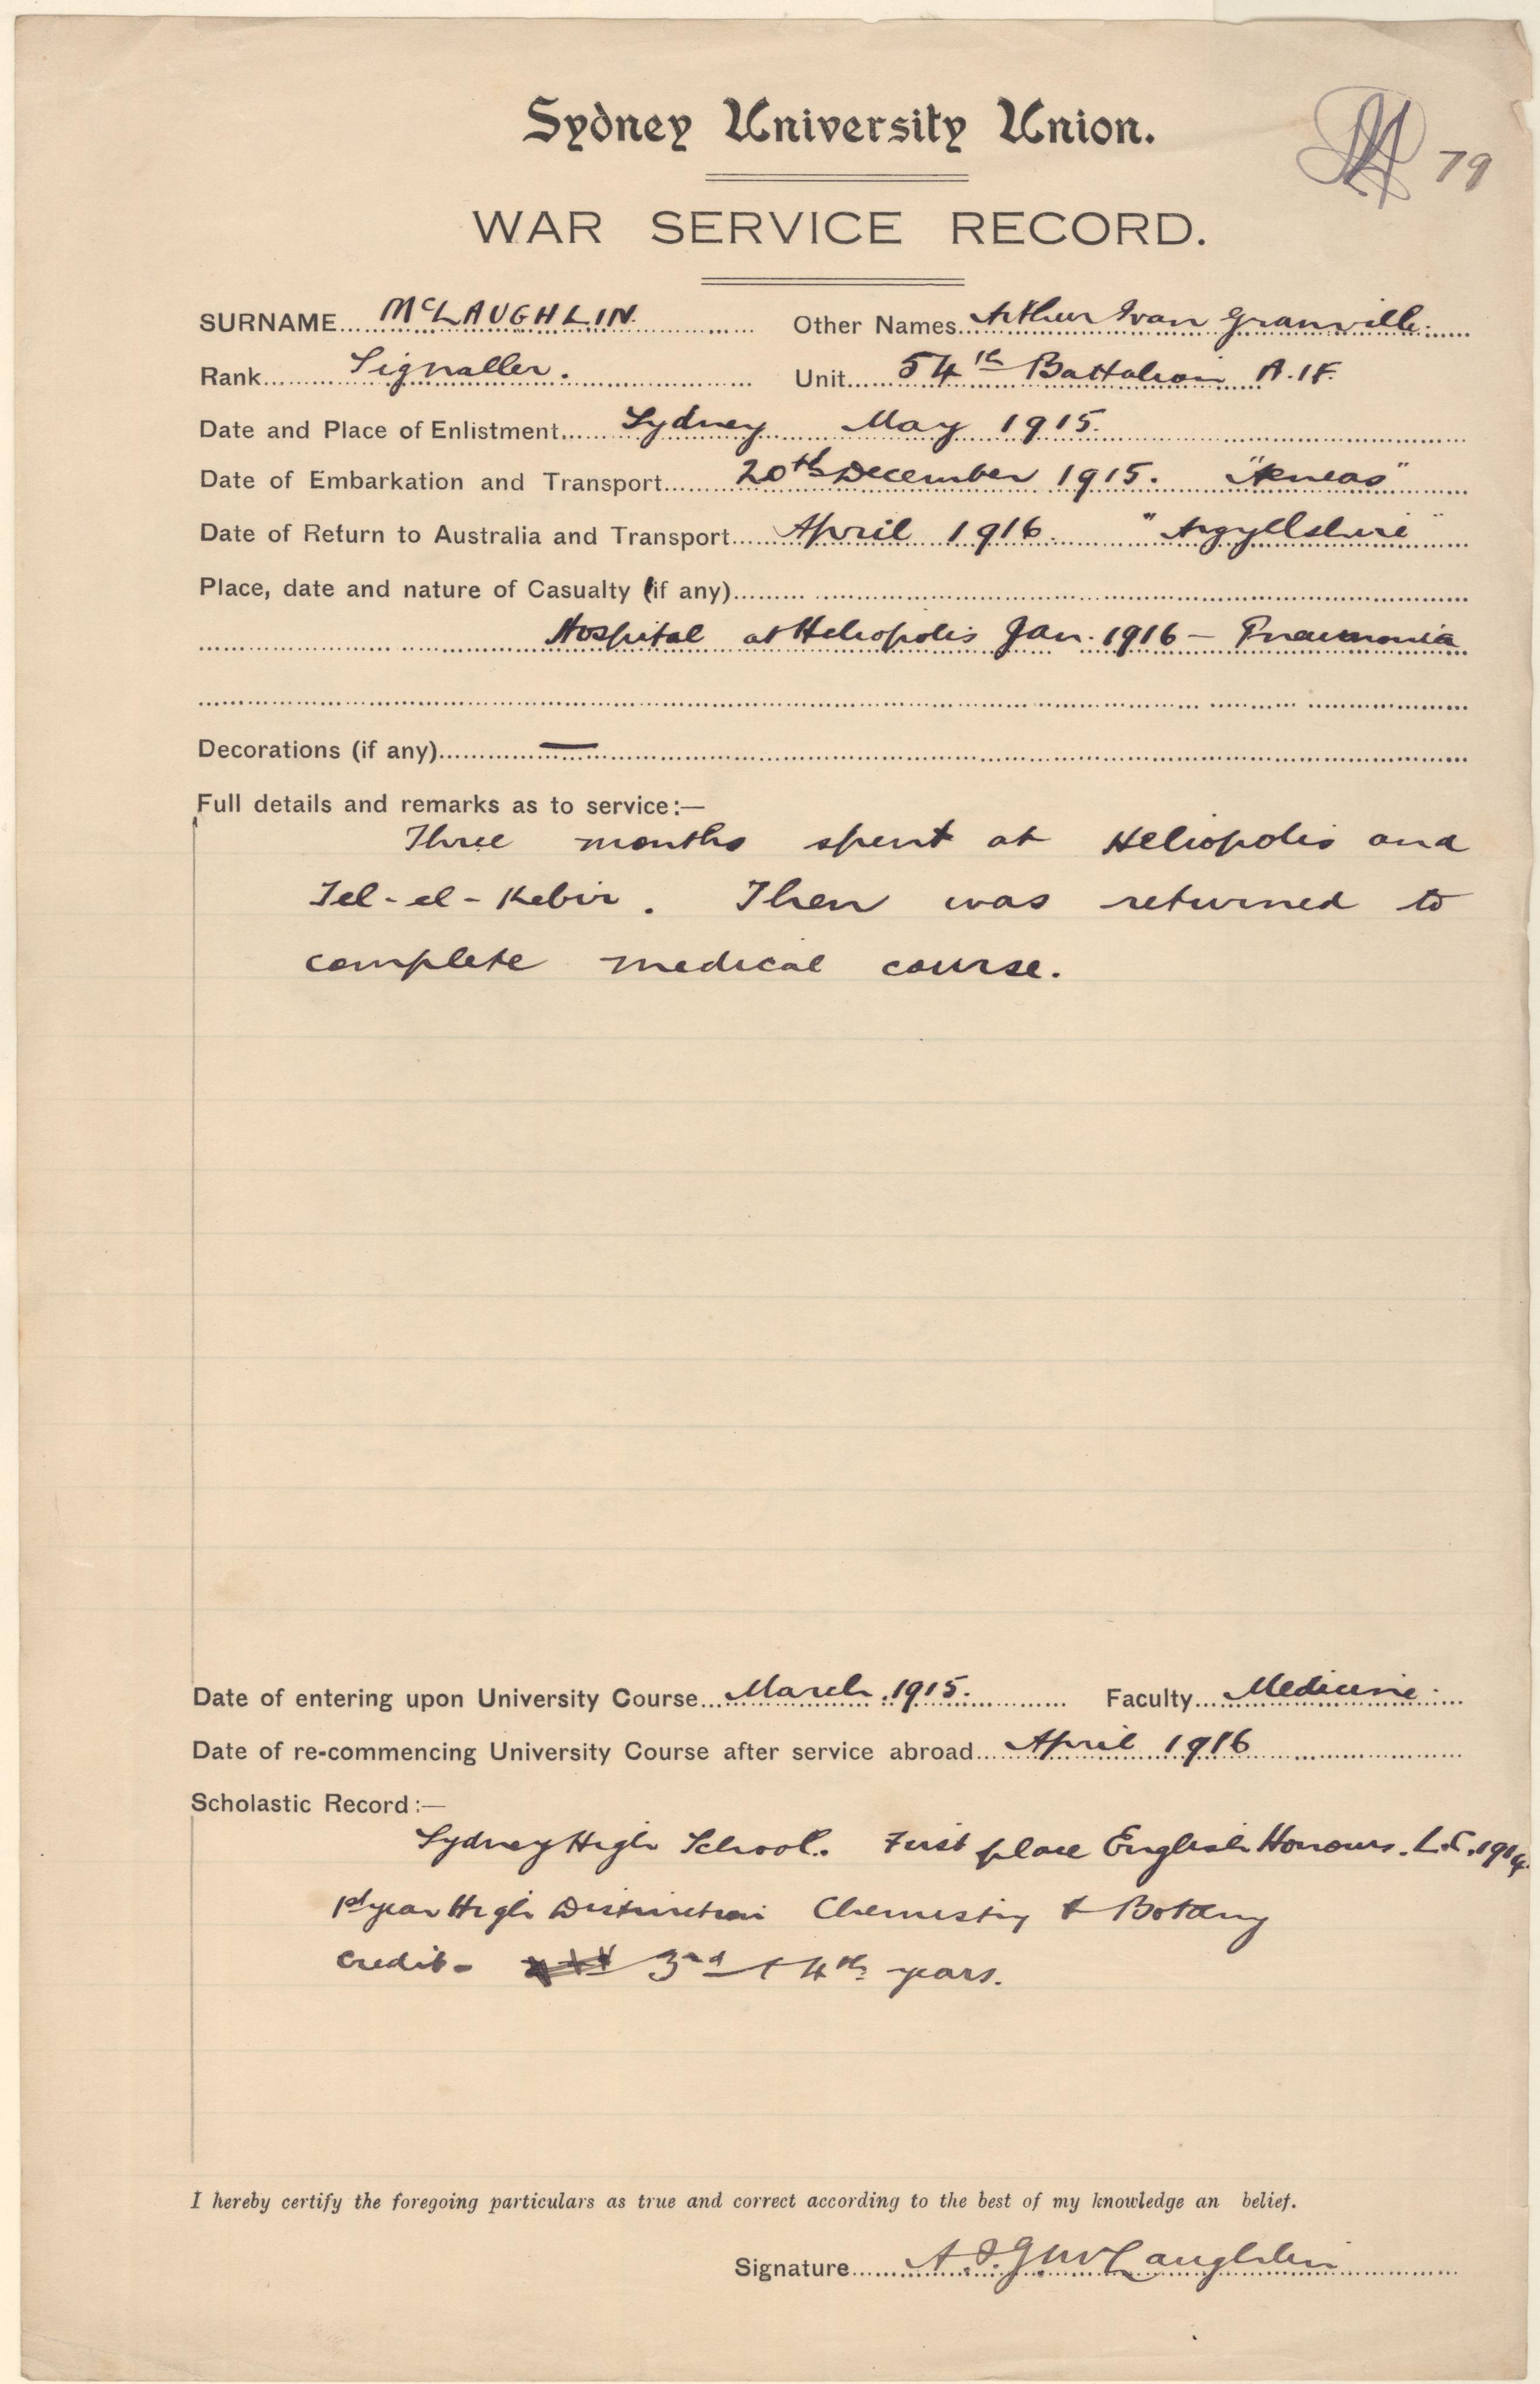 Sydney University Union.
79
WAR SERVICE RECORD.
SURNAME McLAUGHLIN. Other Names Arthur Ivan Granville.
Rank Signaller. Unit 54th Battalion A.I.F.
Date and Place of Enlistment Sydney May 1915.
Date of Embarkation and Transport 20th December 1915. "Aeneas"
Date of Return to Australia and Transport April 1916. "Argyllshire"
Place, date and nature of Casualty (if any)
Hospital at Heliopolis Jan. 1916 — Pneumonia
Decorations (if any) —
Full details and remarks as to service:—
Three months spent at Heliopolis and
Tel-el-Kebir. Then was returned to
complete medical course.
Date of entering upon University Course March 1915. Faculty Medicine.
Date of re-commencing University Course after service abroad April 1916
Scholastic Record:—
Sydney High School. First place English Honours. L.C. 1914.
1st year High Distinction Chemistry & Botany
Credit - 3rd & 4th years.
I hereby certify the foregoing particulars as true and correct according to the best of my knowledge an belief.
Signature A.I.G. McLaughlin